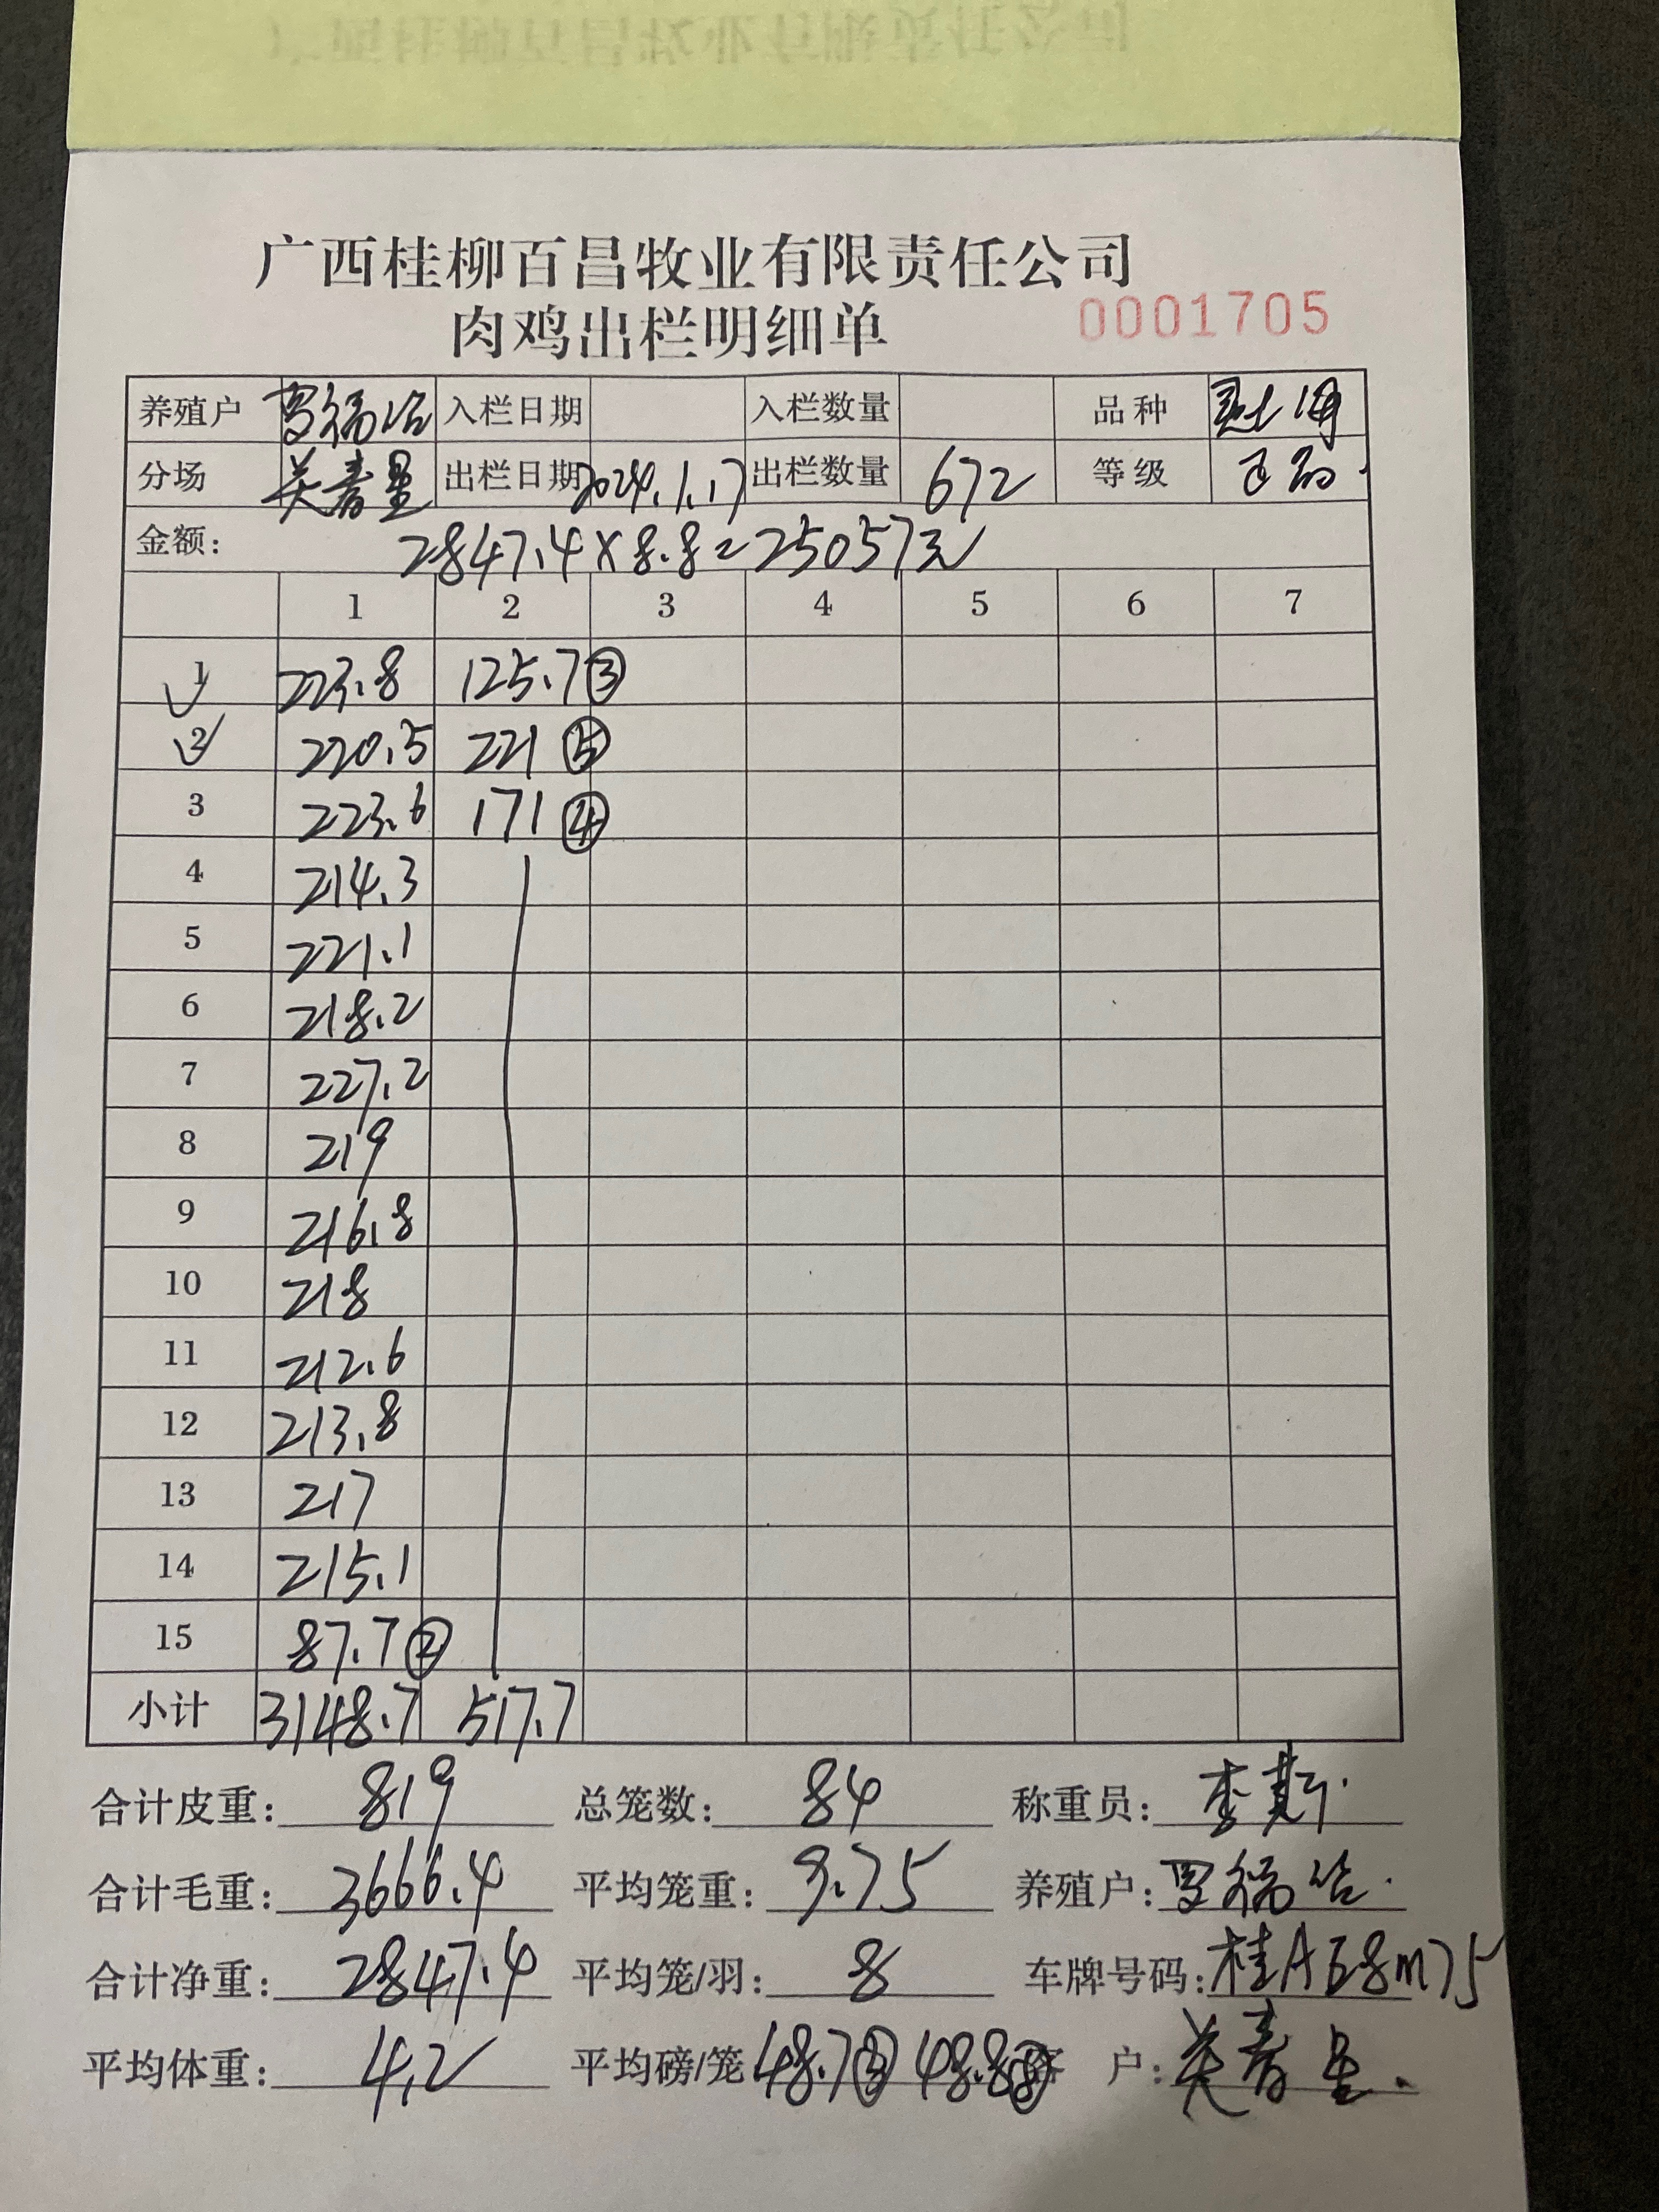 广西桂柳百昌牧业有限责任公司
肉鸡出栏明细单 0001705
养殖户 入栏日期 入栏数量 品种
分场 出栏日期 2024.1.17 出栏数量 672 等级
金额: 2847.4×8.8=25057元
1 2 3 4 5 6 7
1 223.8 125.7③
2 220.5 221⑤
3 223.6 171④
4 214.3
5 221.1
6 218.2
7 227.2
8 219
9 216.8
10 218
11 212.6
12 213.8
13 217
14 215.1
15 87.7②
小计 3148.7 517.7
合计皮重: 819 总笼数: 84 称重员:
合计毛重: 3666.4 平均笼重: 9.75 养殖户:
合计净重: 2847.4 平均笼/羽: 8 车牌号码: 桂AE8M75
平均体重: 4.2 平均磅/笼 48.7 48.8 户: